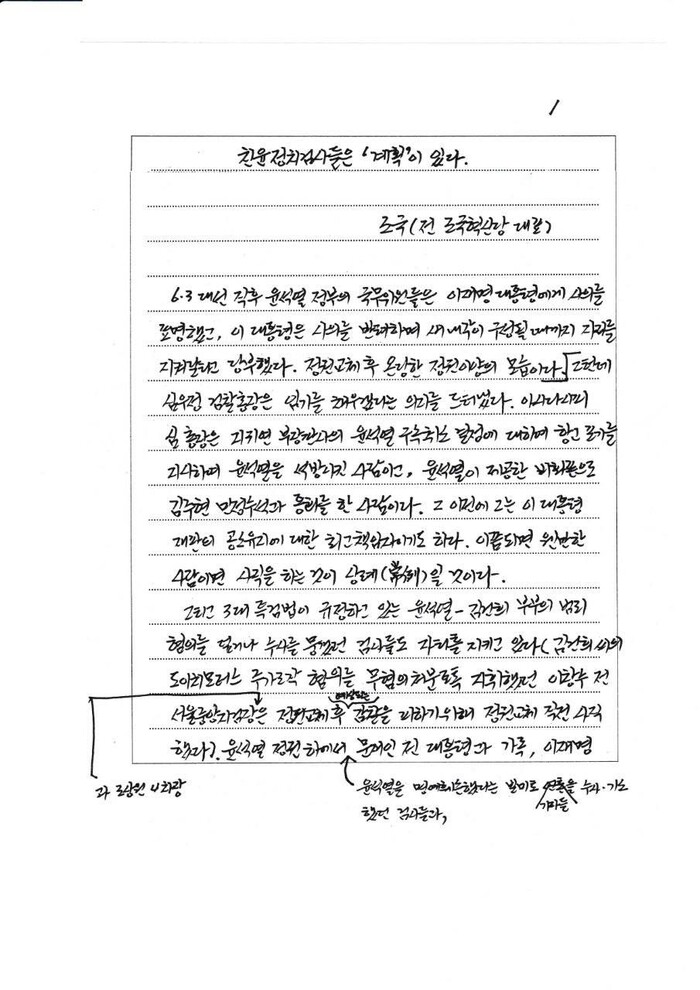 1
친윤정치검사들은 '계획'이 있다.
조국(전 조국혁신당 대표)
6·3 대선 직후 윤석열 정부의 국무위원들은 이재명 대통령에게 사의를
표명했고, 이 대통령은 사의를 반려하며 새 내각이 구성될 때까지 자리를
지켜달라고 당부했다. 정권교체 후 온당한 정권이양의 모습이다. 그런데
심우정 검찰총장은 임기를 채우겠다는 의지를 드러냈다. 아시다시피
심 총장은 지귀연 부장판사의 윤석열 구속취소 결정에 대하여 항고 포기를
지시하며 윤석열을 석방시킨 사람이고, 윤석열이 제공한 비화폰으로
김주현 민정수석과 통화를 한 사람이다. 그 이전에 그는 이 대통령
재판의 공소유지에 대한 최고책임자이기도 하다. 이쯤되면 웬만한
사람이면 사직을 하는 것이 상례(常例)일 것이다.
그리고 3대 특검법이 규정하고 있는 윤석열-김건희 부부의 범죄
혐의를 덮거나 수사를 뭉갰던 검사들도 자리를 지키고 있다(김건희 씨의
도이치모터스 주가조작 혐의를 무혐의처분토록 지휘했던 이창수 전
예상되는
서울중앙지검장은 정권교체 후 감찰을 피하기 위해 정권교체 직전 사직
했다). 윤석열 정권 하에서 문재인 전 대통령과 가족, 이재명
과 조상원 4차장
윤석열을 명예훼손했다는 빌미로 언론을 수사·기소
기자들
했던 검사들과,